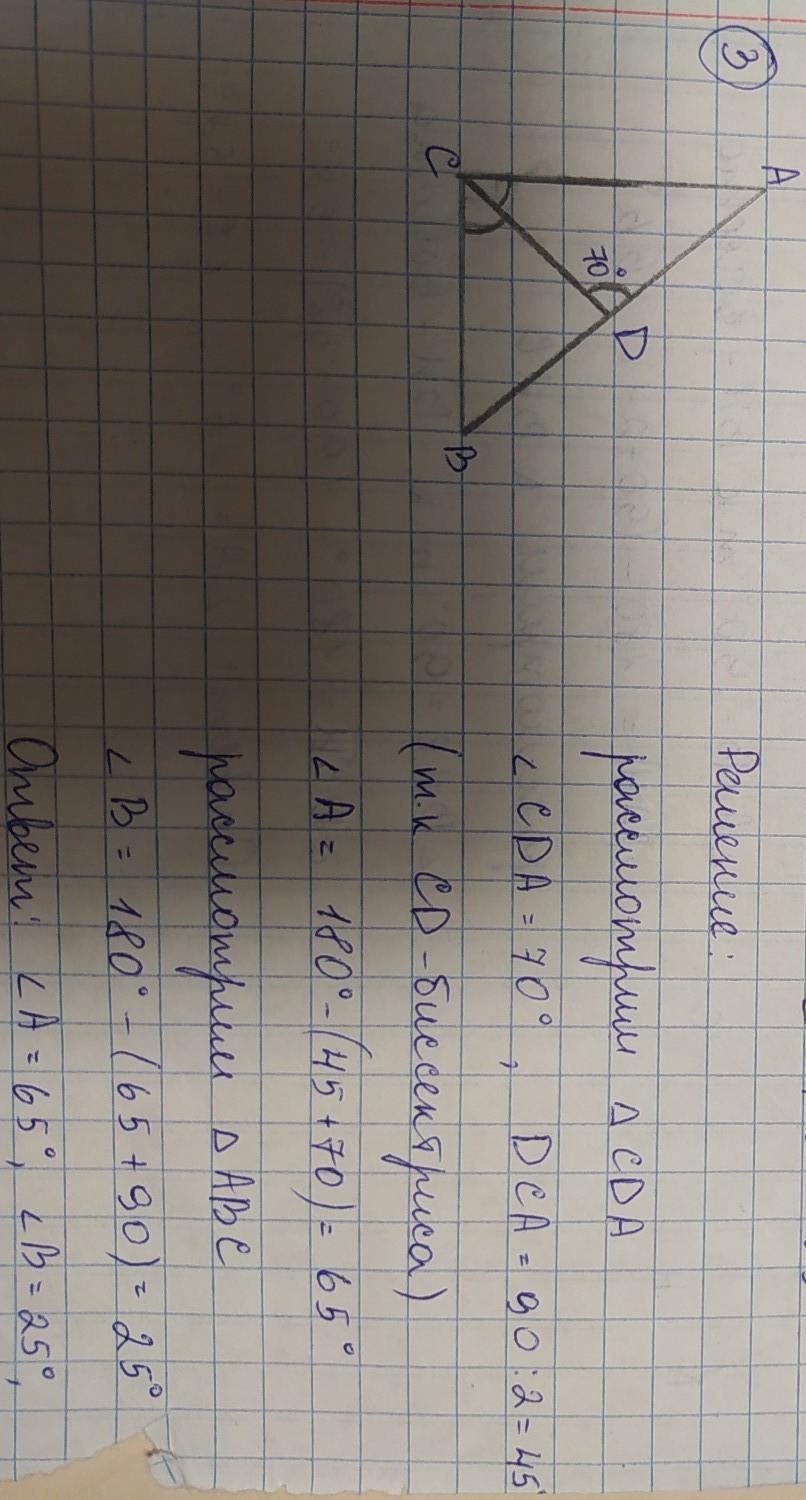 3
A
70°
D
C
B
Решение:
рассмотрим △CDA
∠CDA = 70°, DCA = 90:2=45
(т.к CD - биссектриса)
∠A = 180° - (45+70) = 65°
рассмотрим △ABC
∠B = 180° - (65+90) = 25°
Ответ: ∠A = 65°, ∠B = 25°,